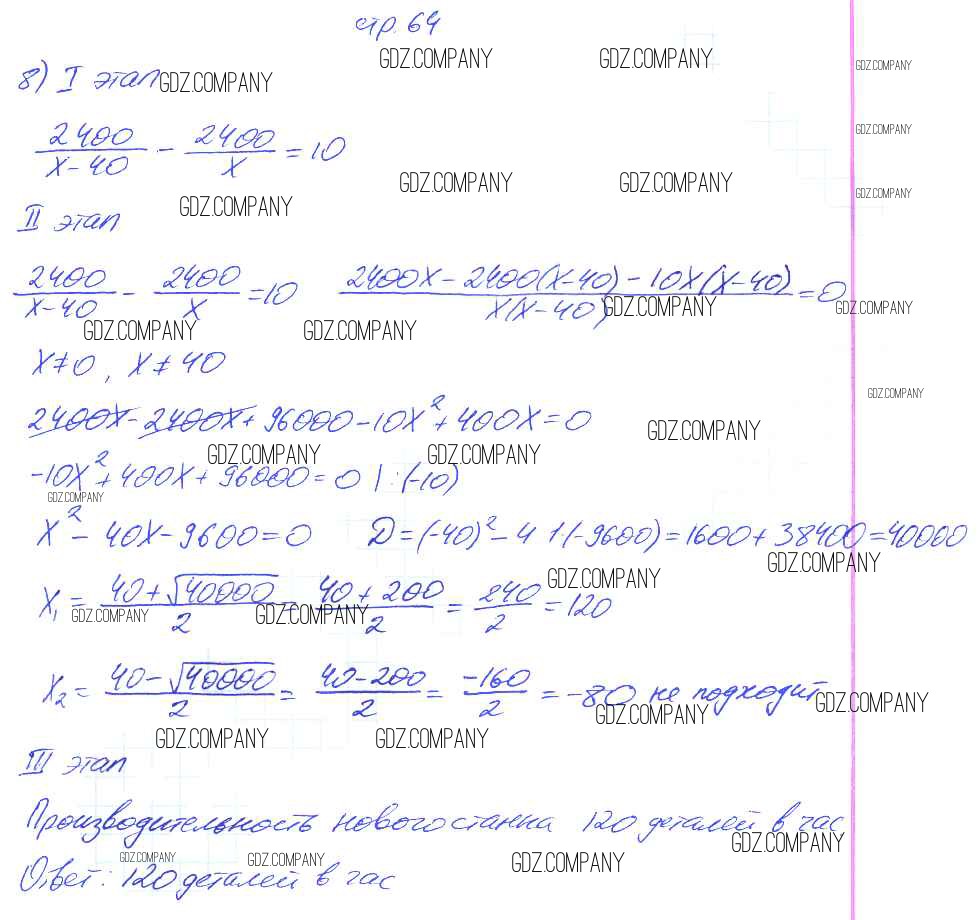 стр. 64
GDZ.COMPANY GDZ.COMPANY GDZ.COMPANY
8) I этап GDZ.COMPANY
GDZ.COMPANY
2400/(x-40) - 2400/x = 10
GDZ.COMPANY GDZ.COMPANY GDZ.COMPANY
II этап GDZ.COMPANY
2400/(x-40) - 2400/x = 10 (2400x - 2400(x-40) - 10x(x-40))/(x(x-40)) = 0
GDZ.COMPANY GDZ.COMPANY
GDZ.COMPANY GDZ.COMPANY
x≠0, x≠40
GDZ.COMPANY
2400x - 2400x + 96000 - 10x² + 400x = 0
GDZ.COMPANY
GDZ.COMPANY GDZ.COMPANY
-10x² + 400x + 96000 = 0 | :(-10)
GDZ.COMPANY
x² - 40x - 9600 = 0 D = (-40)² - 4·1·(-9600) = 1600 + 38400 = 40000
GDZ.COMPANY
GDZ.COMPANY
x₁ = (40+√40000)/2 = (40+200)/2 = 240/2 = 120
GDZ.COMPANY GDZ.COMPANY
x₂ = (40-√40000)/2 = (40-200)/2 = -160/2 = -80 не подходит
GDZ.COMPANY GDZ.COMPANY
GDZ.COMPANY GDZ.COMPANY
III этап
Производительность нового станка 120 деталей в час
GDZ.COMPANY
GDZ.COMPANY GDZ.COMPANY GDZ.COMPANY
Ответ: 120 деталей в час